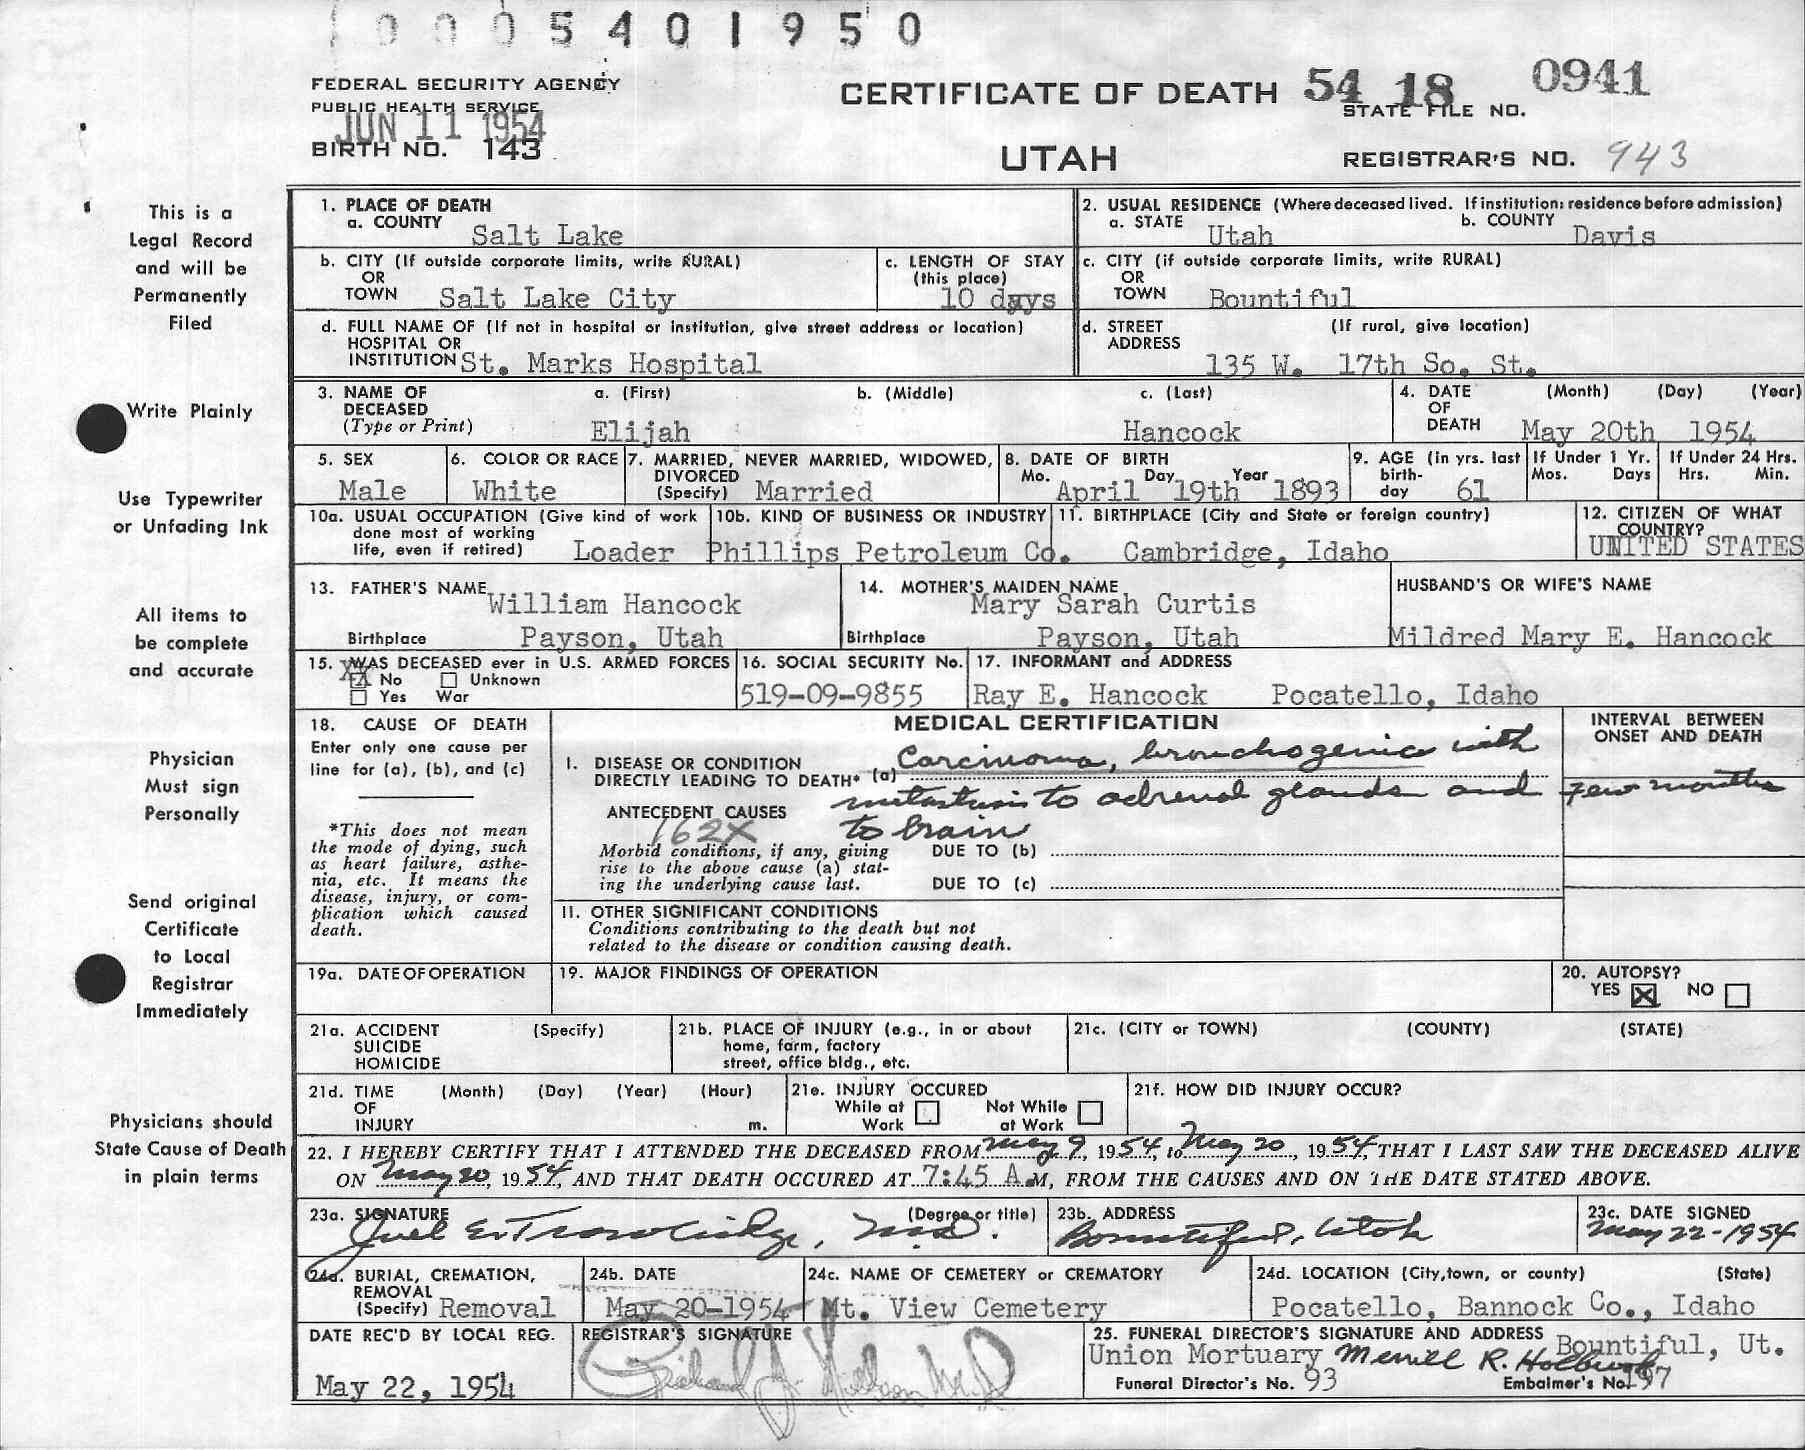 0005401950
FEDERAL SECURITY AGENCY
PUBLIC HEALTH SERVICE
JUN 11 1954
BIRTH NO. 143
CERTIFICATE OF DEATH
UTAH
54 18 0941
STATE FILE NO.
REGISTRAR'S NO. 943
This is a
Legal Record
and will be
Permanently
Filed
Write Plainly
Use Typewriter
or Unfading Ink
All items to
be complete
and accurate
Physician
Must sign
Personally
Send original
Certificate
to Local
Registrar
Immediately
Physicians should
State Cause of Death
in plain terms
1. PLACE OF DEATH
a. COUNTY Salt Lake
2. USUAL RESIDENCE (Where deceased lived. If institution: residence before admission)
a. STATE Utah b. COUNTY Davis
b. CITY (If outside corporate limits, write RURAL)
OR
TOWN Salt Lake City
c. LENGTH OF STAY
(this place)
10 days
c. CITY (if outside corporate limits, write RURAL)
OR
TOWN Bountiful
d. FULL NAME OF (If not in hospital or institution, give street address or location)
HOSPITAL OR
INSTITUTION St. Marks Hospital
d. STREET (If rural, give location)
ADDRESS
135 W. 17th So. St.
3. NAME OF DECEASED (Type or Print)
a. (First) b. (Middle) c. (Last)
Elijah Hancock
4. DATE OF DEATH (Month) (Day) (Year)
May 20th 1954
5. SEX
Male
6. COLOR OR RACE
White
7. MARRIED, NEVER MARRIED, WIDOWED,
DIVORCED
(Specify) Married
8. DATE OF BIRTH
Mo. Day Year
April 19th 1893
9. AGE (in yrs. last
birth-
day 61
If Under 1 Yr.
Mos. Days
If Under 24 Hrs.
Hrs. Min.
10a. USUAL OCCUPATION (Give kind of work
done most of working
life, even if retired) Loader
10b. KIND OF BUSINESS OR INDUSTRY
Phillips Petroleum Co.
11. BIRTHPLACE (City and State or foreign country)
Cambridge, Idaho
12. CITIZEN OF WHAT
COUNTRY?
UNITED STATES
13. FATHER'S NAME
William Hancock
Birthplace Payson, Utah
14. MOTHER'S MAIDEN NAME
Mary Sarah Curtis
Birthplace Payson, Utah
HUSBAND'S OR WIFE'S NAME
Mildred Mary E. Hancock
15. WAS DECEASED ever in U.S. ARMED FORCES
XX No Unknown
Yes War
16. SOCIAL SECURITY No.
519-09-9855
17. INFORMANT and ADDRESS
Ray E. Hancock Pocatello, Idaho
18. CAUSE OF DEATH
Enter only one cause per
line for (a), (b), and (c)
*This does not mean
the mode of dying, such
as heart failure, asthe-
nia, etc. It means the
disease, injury, or com-
plication which caused
death.
MEDICAL CERTIFICATION
INTERVAL BETWEEN
ONSET AND DEATH
I. DISEASE OR CONDITION
DIRECTLY LEADING TO DEATH* (a) Carcinoma, bronchogenic with
ANTECEDENT CAUSES metastasis to adrenal glands and few months
162X to brain
Morbid conditions, if any, giving
rise to the above cause (a) stat-
ing the underlying cause last.
DUE TO (b)
DUE TO (c)
II. OTHER SIGNIFICANT CONDITIONS
Conditions contributing to the death but not
related to the disease or condition causing death.
19a. DATE OF OPERATION
19. MAJOR FINDINGS OF OPERATION
20. AUTOPSY?
YES X NO
21a. ACCIDENT (Specify)
SUICIDE
HOMICIDE
21b. PLACE OF INJURY (e.g., in or about
home, farm, factory
street, office bldg., etc.
21c. (CITY or TOWN) (COUNTY) (STATE)
21d. TIME (Month) (Day) (Year) (Hour)
OF
INJURY m.
21e. INJURY OCCURED
While at Work Not While at Work
21f. HOW DID INJURY OCCUR?
22. I HEREBY CERTIFY THAT I ATTENDED THE DECEASED FROM May 9, 1954, to May 20, 1954, THAT I LAST SAW THE DECEASED ALIVE
ON May 20, 1954, AND THAT DEATH OCCURED AT 7:45 A.M, FROM THE CAUSES AND ON THE DATE STATED ABOVE.
23a. SIGNATURE (Degree or title)
Joel E. Trowbridge, M.D.
23b. ADDRESS
Bountiful, Utah
23c. DATE SIGNED
May 22-1954
24a. BURIAL, CREMATION,
REMOVAL
(Specify) Removal
24b. DATE
May 20-1954
24c. NAME OF CEMETERY or CREMATORY
Mt. View Cemetery
24d. LOCATION (City, town, or county) (State)
Pocatello, Bannock Co., Idaho
DATE REC'D BY LOCAL REG.
May 22, 1954
REGISTRAR'S SIGNATURE
25. FUNERAL DIRECTOR'S SIGNATURE AND ADDRESS Bountiful, Ut.
Union Mortuary Merrill R. Holbrook
Funeral Director's No. 93 Embalmer's No. 197